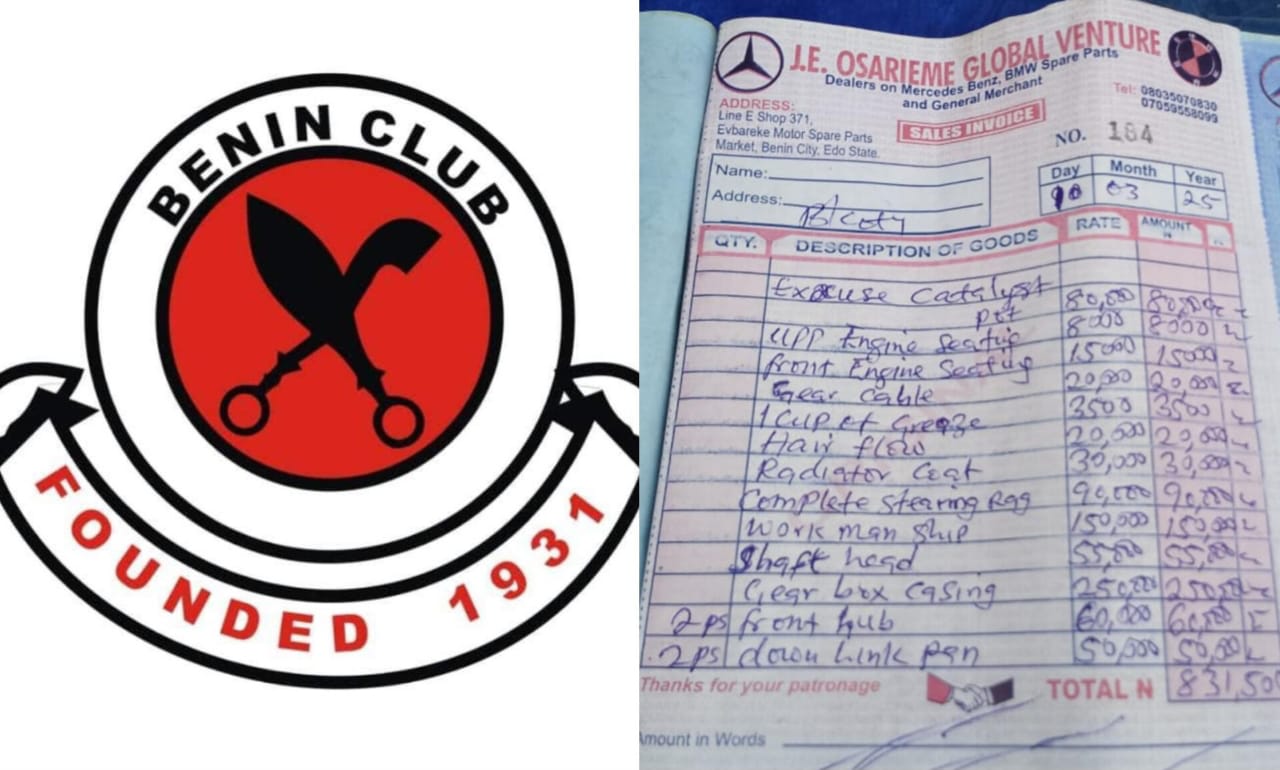 BENIN CLUB
FOUNDED 1931
J.E. OSARIEME GLOBAL VENTURE
Dealers on Mercedes Benz, BMW Spare Parts
and General Merchant
ADDRESS:
Line E Shop 371,
Evbareke Motor Spare Parts
Market, Benin City, Edo State.
Tel: 08035070830
07059558099
SALES INVOICE
NO. 184
Name:
Address: B/City
Day Month Year
10 03 25
QTY. DESCRIPTION OF GOODS RATE AMOUNT
Excuse Catalyst 80,000 80,000
pot
upp Engine Seating 8000 8000
front Engine Seating 15000 15000
Gear cable 20,000 20,000
1 Cup of Grease 3500 3500
Hair flow 20,000 20,000
Radiator Coat 30,000 30,000
Complete Stearing Rag 90,000 90,000
Work man ship 150,000 150,000
Shaft head 55,000 55,000
Gear box casing 250,000 250,000
2 ps front hub 60,000 60,000
2 ps down Link pan 50,000 50,000
Thanks for your patronage TOTAL N 831,500
Amount in Words